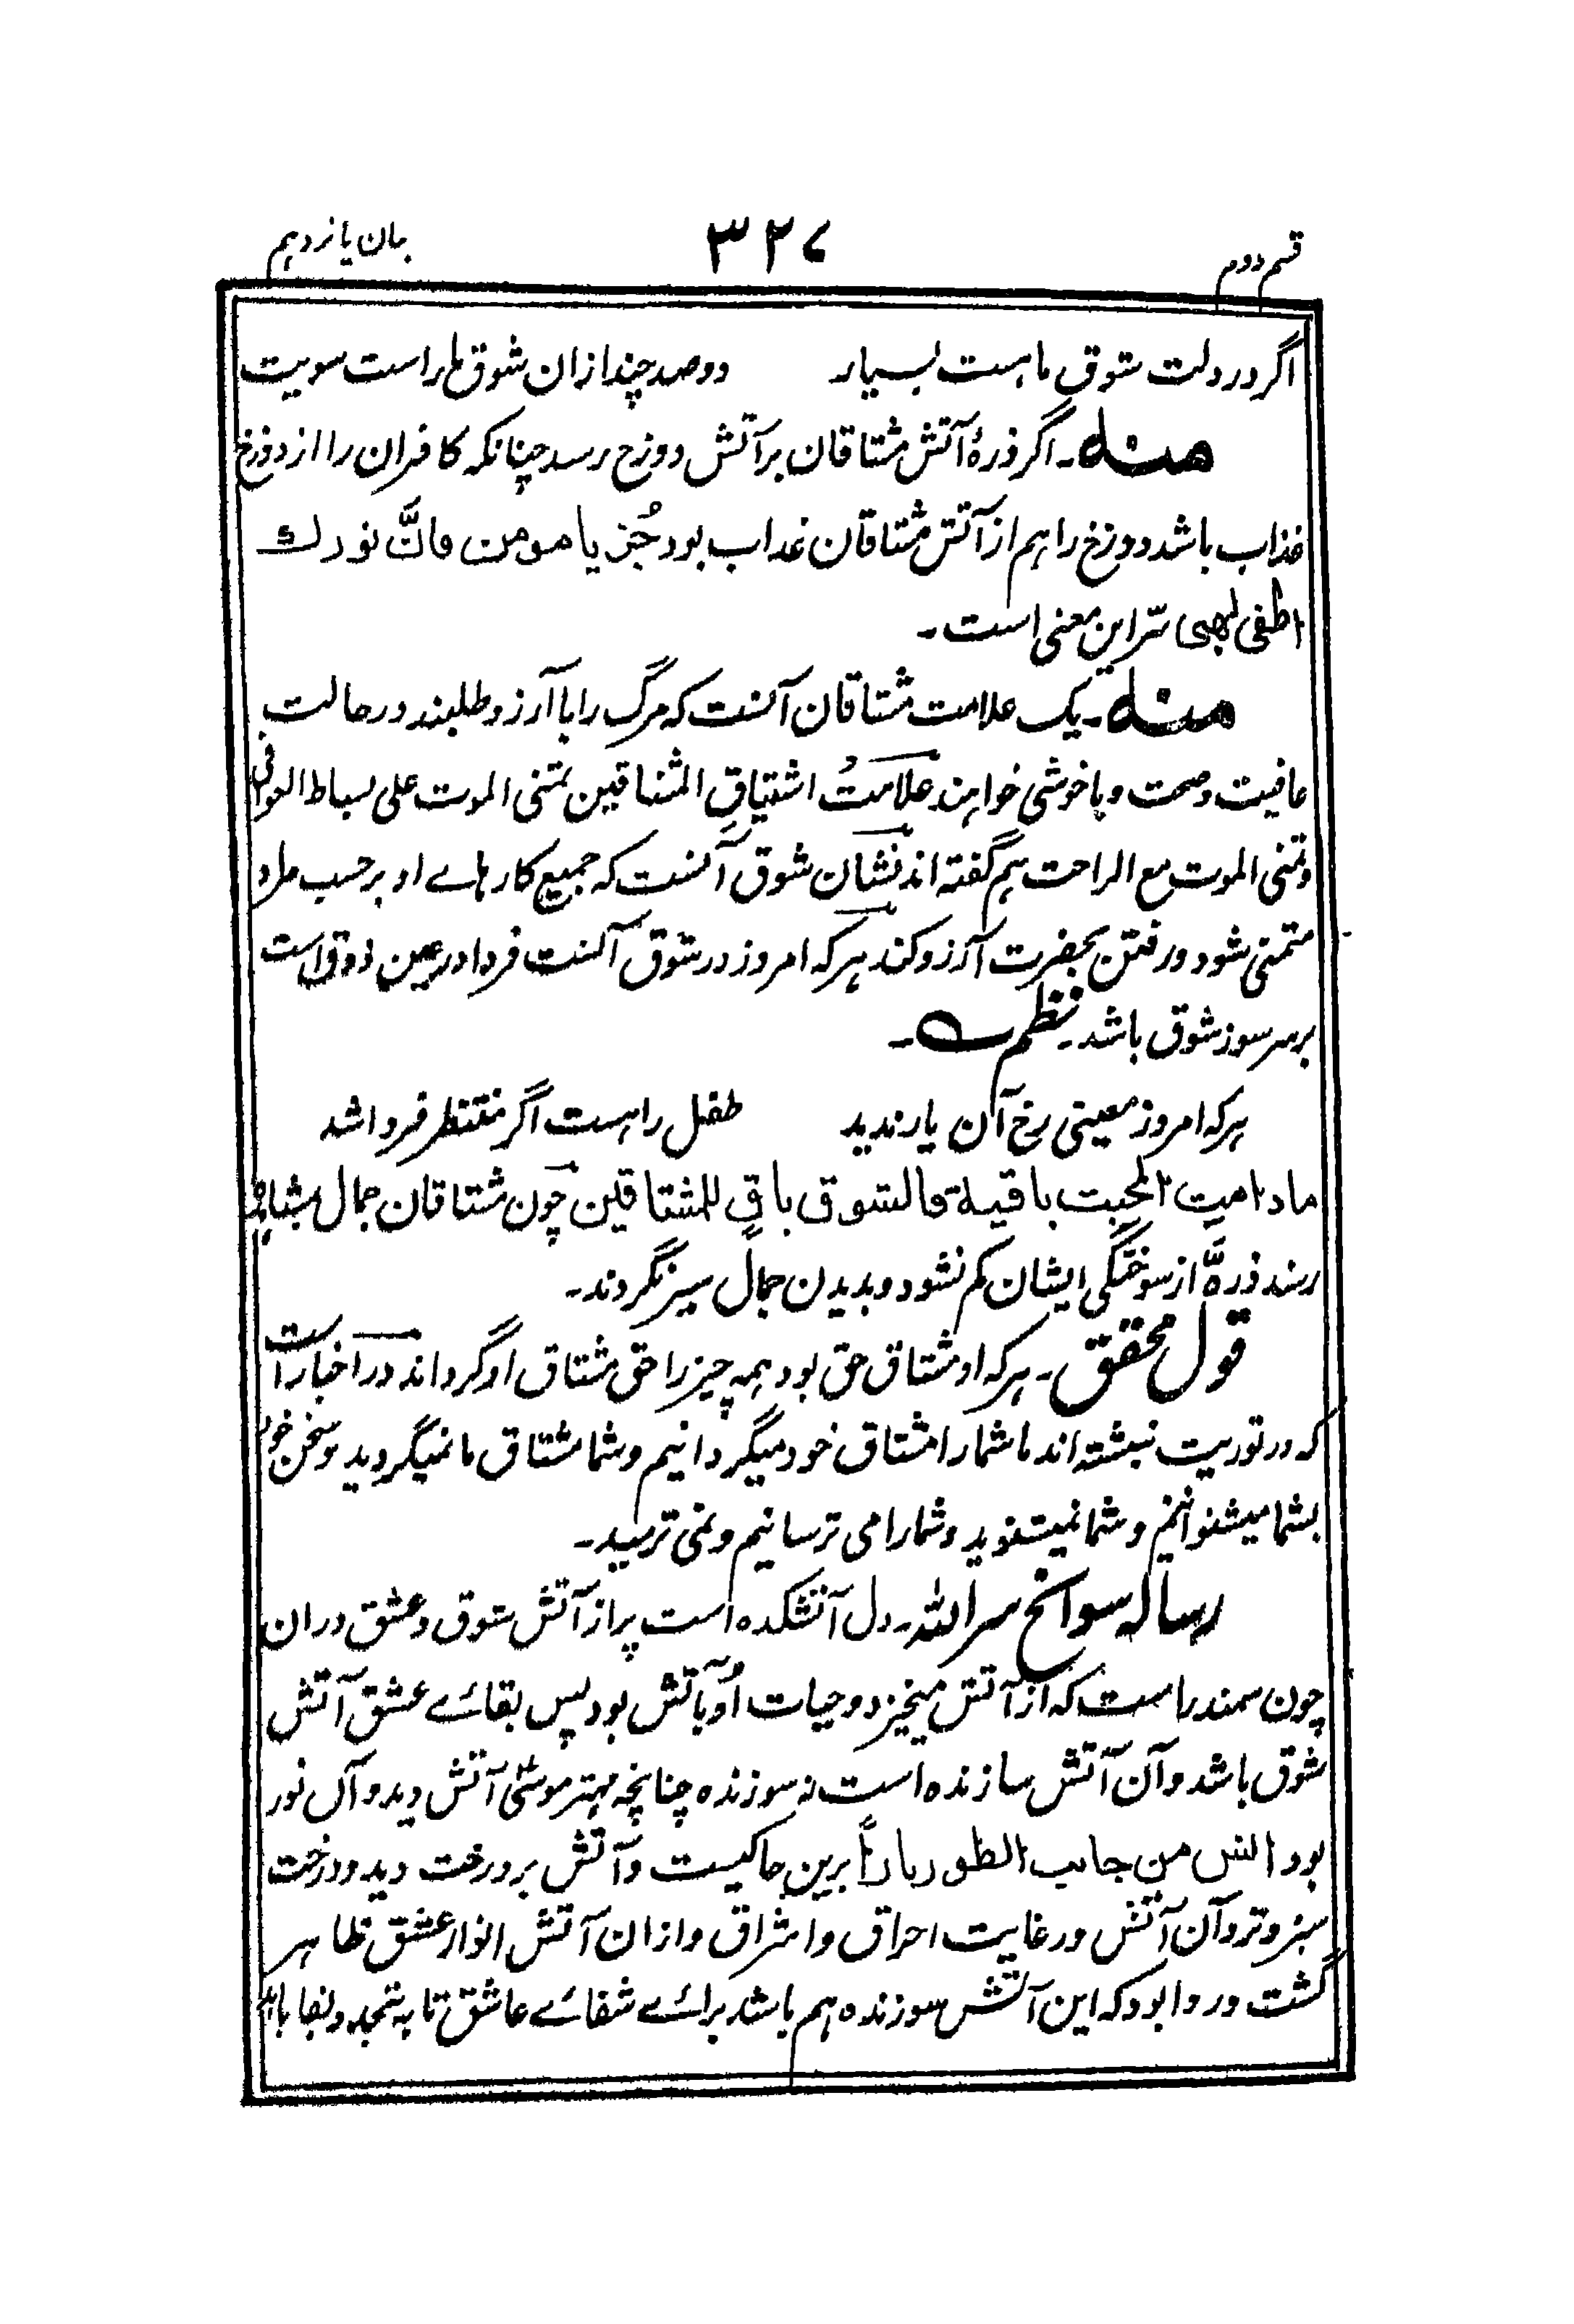 قسم دوم ۳۲۷ بیان یازدهم
اگر در دلت شوق ما هست بسیار دو صد چند ازان شوق ما راست سویت
منه۔ اگر ذرهٔ آتش مشتاقان بر آتش دوزخ رسد چنانکه کافران را از دوزخ
عذاب باشد دوزخ را هم از آتش مشتاقان عذاب بود جُز یا مومن فانَّ نورك
اطفی لهبی سرّ این معنی است۔
منه۔ یک علامت مشتاقان آنست که مرگ را با آرزو طلبند در حالت
عافیت و صحت و با خوشی خواهند علامتُ اشتیاقِ المشتاقین تمنی الموت علی بساط العوافی
و تمنی الموت مع الراحت هم گفته اند نشان شوق آنست که جمیع کارهاے او بر حسب مراد
متمنی شود و رفتن بحضرت آرزو کند هر که امروز در شوق آنست فردا در عین ذوق است
بر سر سوز شوق باشد۔ نظم۔
هر که امروز معینی رخ آن یار ندید طفل راهست اگر منتظر فردا شد
مادامیت المحبت باقیة فالشوق باقٍ للمشتاقین چون مشتاقان جمال بمشاهده
رسند ذرهّ از سوختگی ایشان کم نشود و بدیدن جمال سیر نگردند۔
قول محقق۔ هر که او مشتاق حق بود همه چیز را حق مشتاق او گرداند در اخبار است
که در توریت نبشته اند ما شما را مشتاق خود میگردانیم و شما مشتاق ما نمیگردید و سخن خود
بشما میشنوانیم و شما نمیشنوید و شما را می ترسانیم و نمی ترسید۔
رساله سوانح سر الله۔ دل آتشکده است پر از آتش شوق و عشق دران
چون سمندر است که از آتش میخیزد و حیات او بآتش بود پس بقائے عشق آتش
شوق باشد و آن آتش سازنده است نه سوزنده چنانچه مهتر موسیٰ آتش دید و آں نور
بود انس من جانب الطور ناراً برین حاکیست و آتش بر درخت دید و درخت
سبز و تر و آن آتش در غایت احراق و اشراق و ازان آتش انوار عشق ظاهر
گشت و روا بود که این آتش سوزنده هم باشد برائے شفائے عاشق تا به تجدد بقا یابد